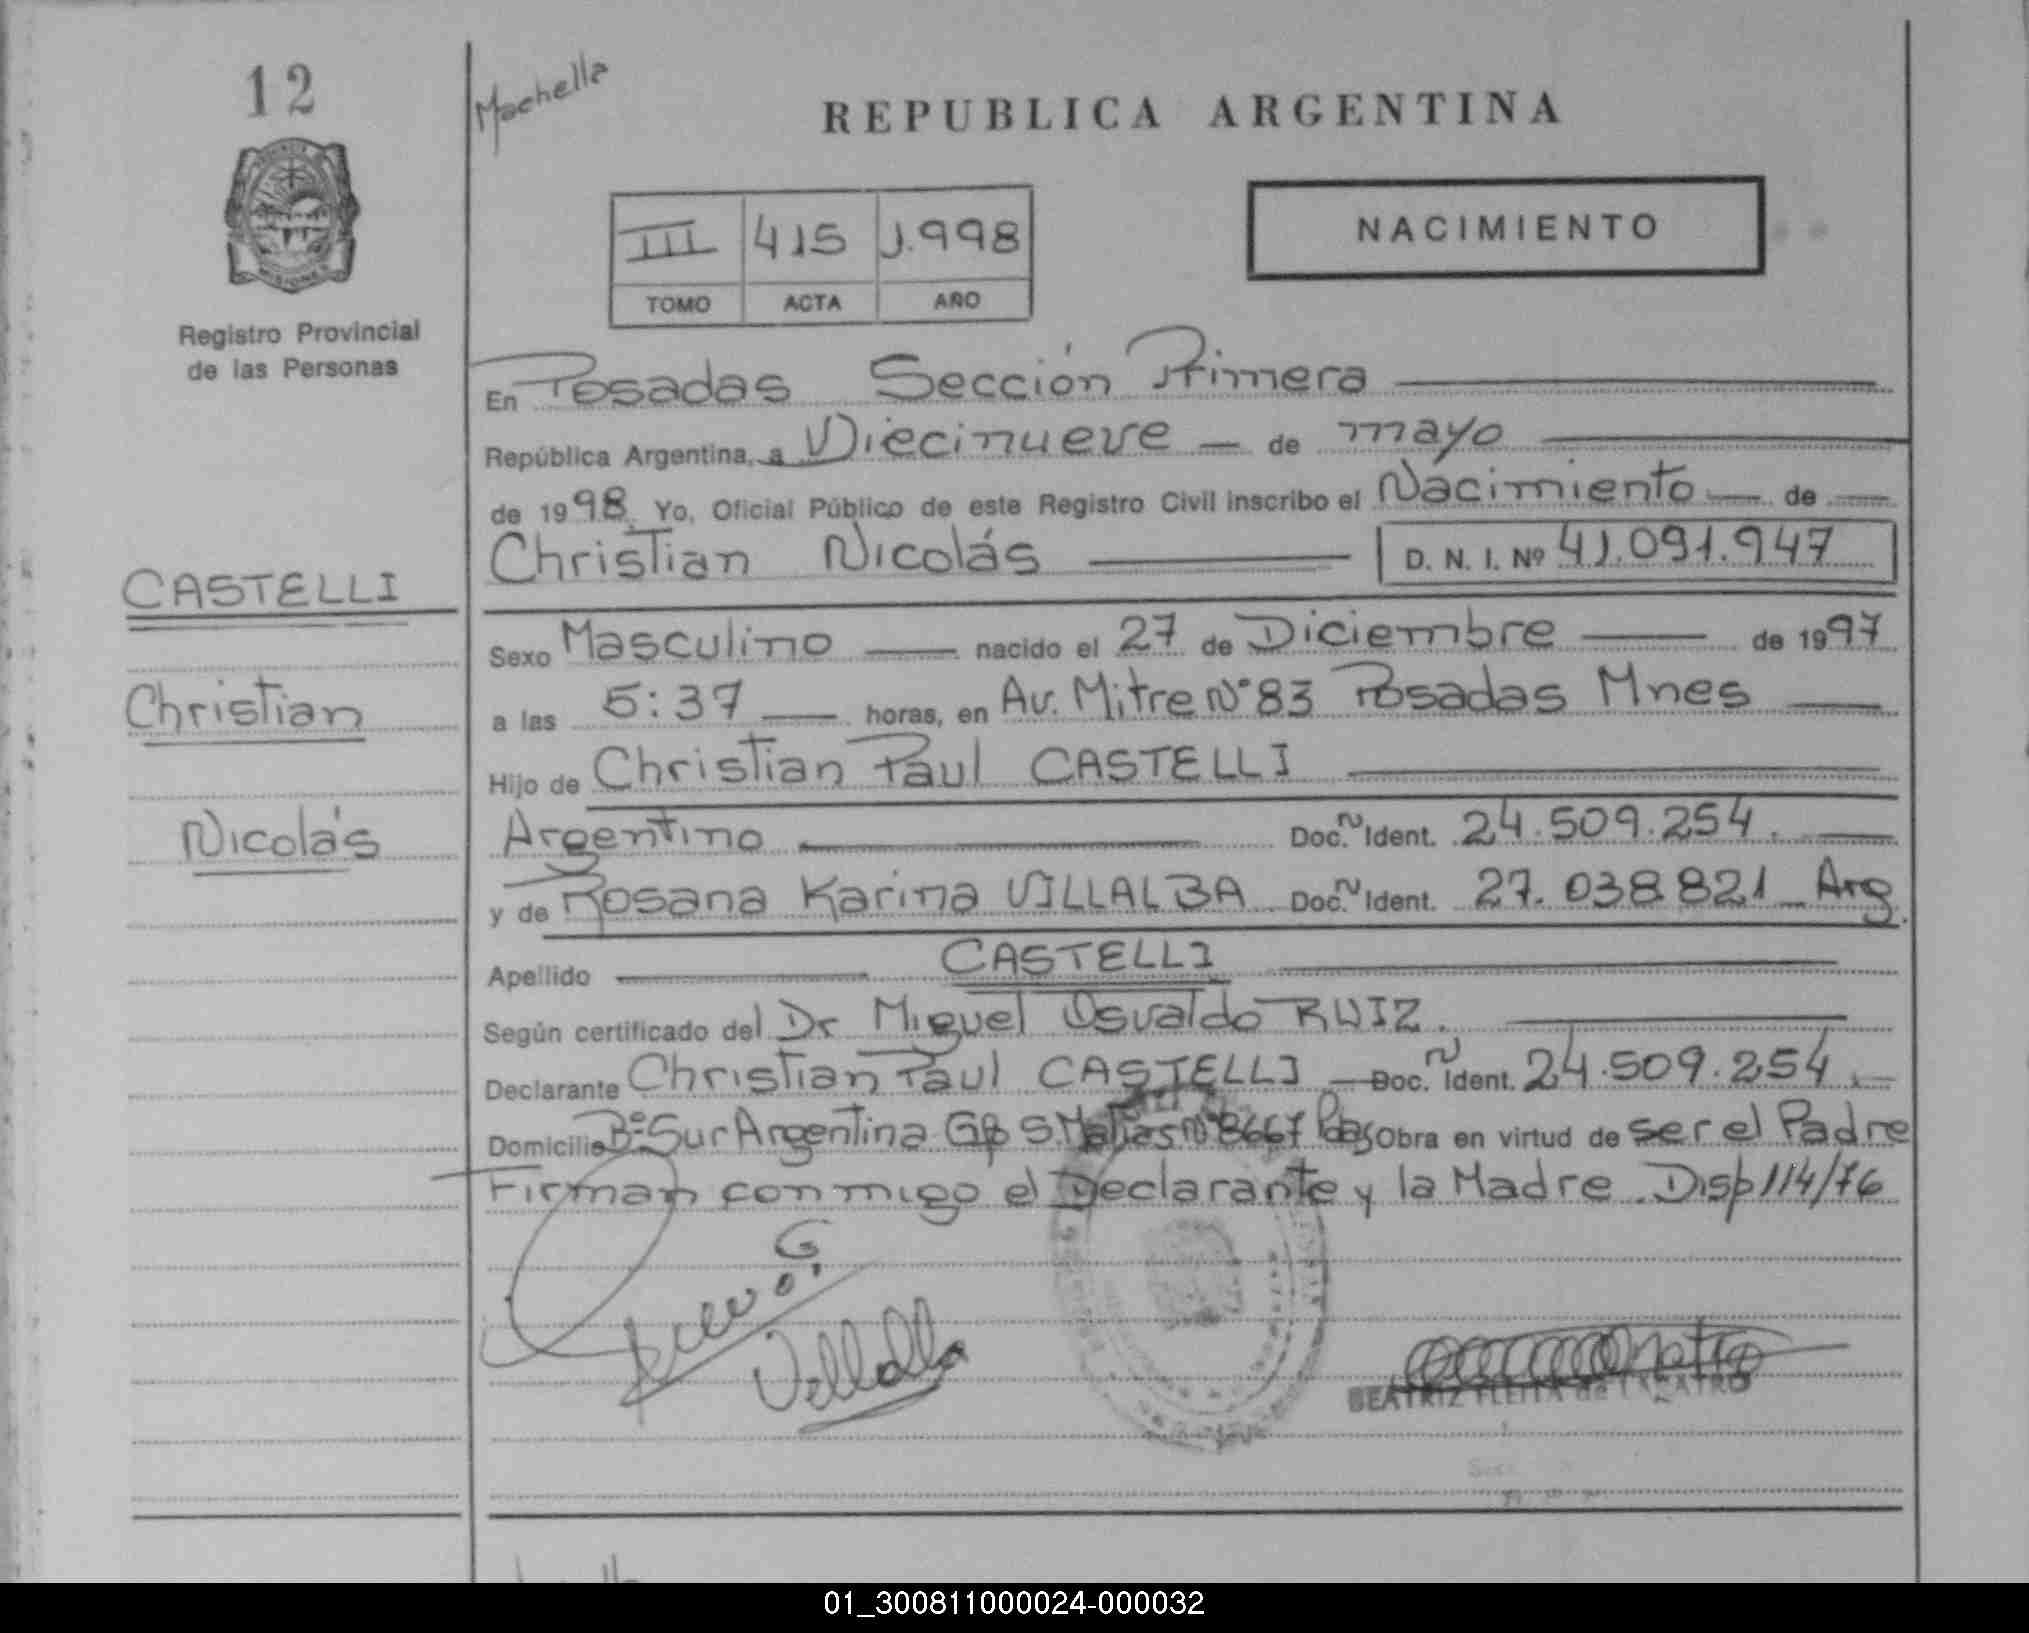 12
Machella
REPUBLICA ARGENTINA
III 415 1.998
TOMO ACTA AÑO
NACIMIENTO
Registro Provincial
de las Personas
En Posadas Sección Primera
República Argentina, a Diecinueve de mayo
de 1998 Yo, Oficial Público de este Registro Civil inscribo el Nacimiento de
Christian Nicolás D. N. I. Nº 41.091.947
CASTELLI
Christian
Nicolás
Sexo Masculino nacido el 27 de Diciembre de 1997
a las 5:37 horas, en Av. Mitre Nº 83 Posadas Mnes
Hijo de Christian Paul CASTELLI
Argentino Doc. Ident. 24.509.254.
y de Rosana Karina VILLALBA Doc. Ident. 27.038.821 Arg.
Apellido CASTELLI
Según certificado del Dr Miguel Osvaldo RUIZ.
Declarante Christian Paul CASTELLI Doc. Ident. 24.509.254.
Domicilio Bº Sur Argentina Gp S. Matias Nº 8667 Pdas Obra en virtud de ser el Padre
Firman conmigo el Declarante y la Madre. Disp 114/76
Villalba
BEATRIZ
01_300811000024-000032